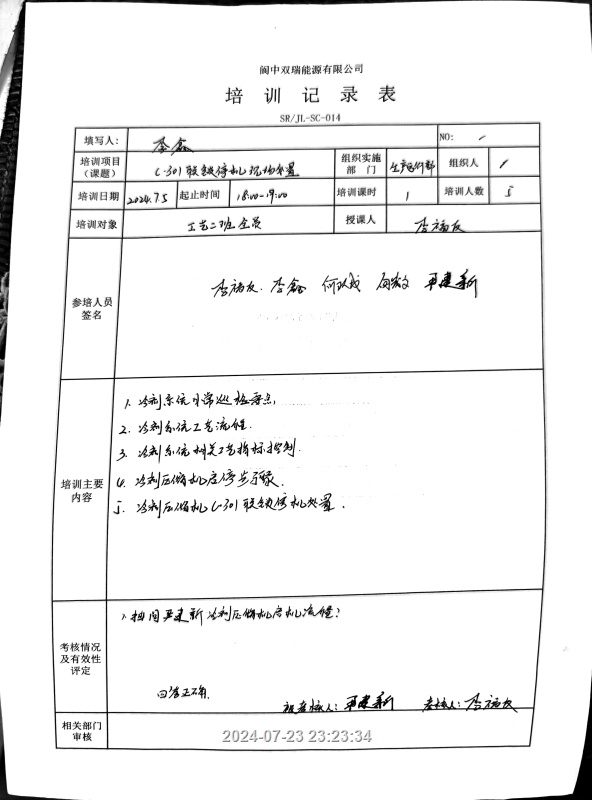 阆中双瑞能源有限公司
培训记录表
SR/JL-SC-014
填写人： 李鑫 NO: /
培训项目（课题） C-301联锁停机现场处置 组织实施部门 生产运行部 组织人 /
培训日期 2024.7.5 起止时间 18:00-19:00 培训课时 1 培训人数 5
培训对象 工艺二班全员 授课人 李福友
参培人员签名 李福友. 李鑫 何 严建新
培训主要内容
1. 冷剂系统日常巡检要点,
2. 冷剂系统工艺流程.
3. 冷剂系统相关工艺指标控制.
4. 冷剂压缩机启停步骤.
5. 冷剂压缩机C-301联锁停机处置.
考核情况及有效性评定
1. 抽问严建新冷剂压缩机启机流程?
回答正确.
被考核人: 严建新 考核人: 李福友
相关部门审核
2024-07-23 23:23:34